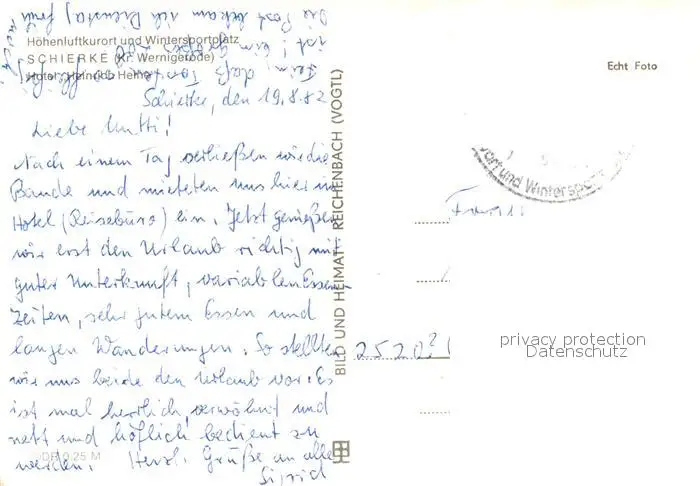 Höhenluftkurort und Wintersportplatz
SCHIERKE (Kr. Wernigerode)
Hotel "Heinrich Heine"
Schierke, den 19.8.82
Liebe Mutti!
Nach einem Tag verließen wir die
Baude und mieteten uns hier im
Hotel (Reisebüro) ein. Jetzt genießen
wir erst den Urlaub richtig mit
guter Unterkunft, variablen Essen-
Zeiten, sehr gutem Essen und
langen Wanderungen. So stellten
wir uns beide den Urlaub vor. Es
ist mal herrlich, verwöhnt und
nett und höflich bedient zu
werden. Herzl. Grüße an alle
Sigrid
Die Post bekam ich Dienstag früh
DR 0,25 M
BILD UND HEIMAT REICHENBACH (VOGTL)
Echt Foto
ort und Wintersport
Frau
2520
privacy protection
Datenschutz